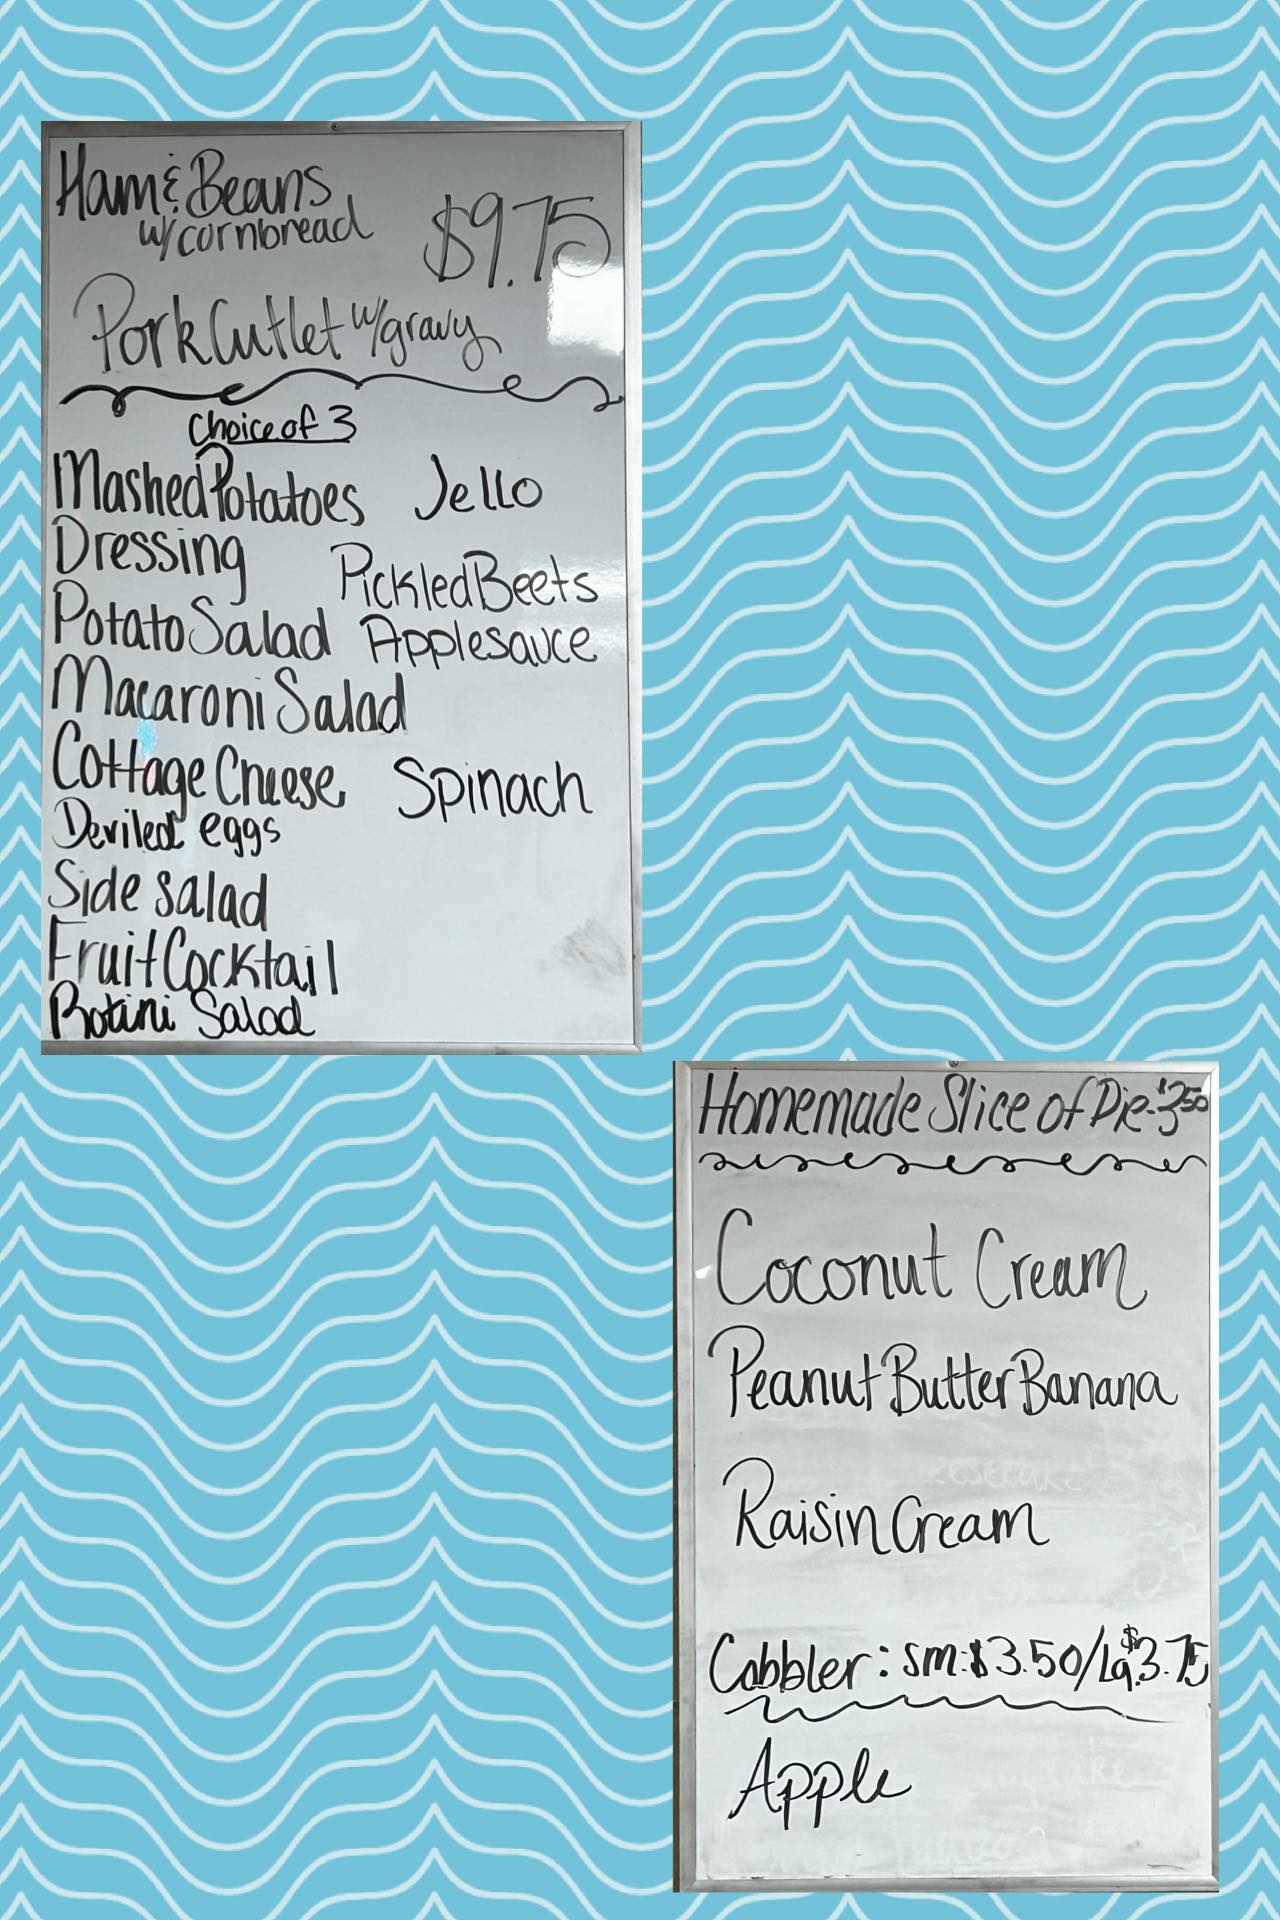 Ham & Beans
w/cornbread
$9.75
Pork Cutlet w/gravy
Choice of 3
Mashed Potatoes
Jello
Dressing
Pickled Beets
Potato Salad
Applesauce
Macaroni Salad
Cottage Cheese
Spinach
Deviled eggs
Side salad
Fruit Cocktail
Rotini Salad
Homemade Slice of Pie-$3.50
Coconut Cream
Peanut Butter Banana
Raisin Cream
Cobbler: sm:$3.50/Lg.$3.75
Apple